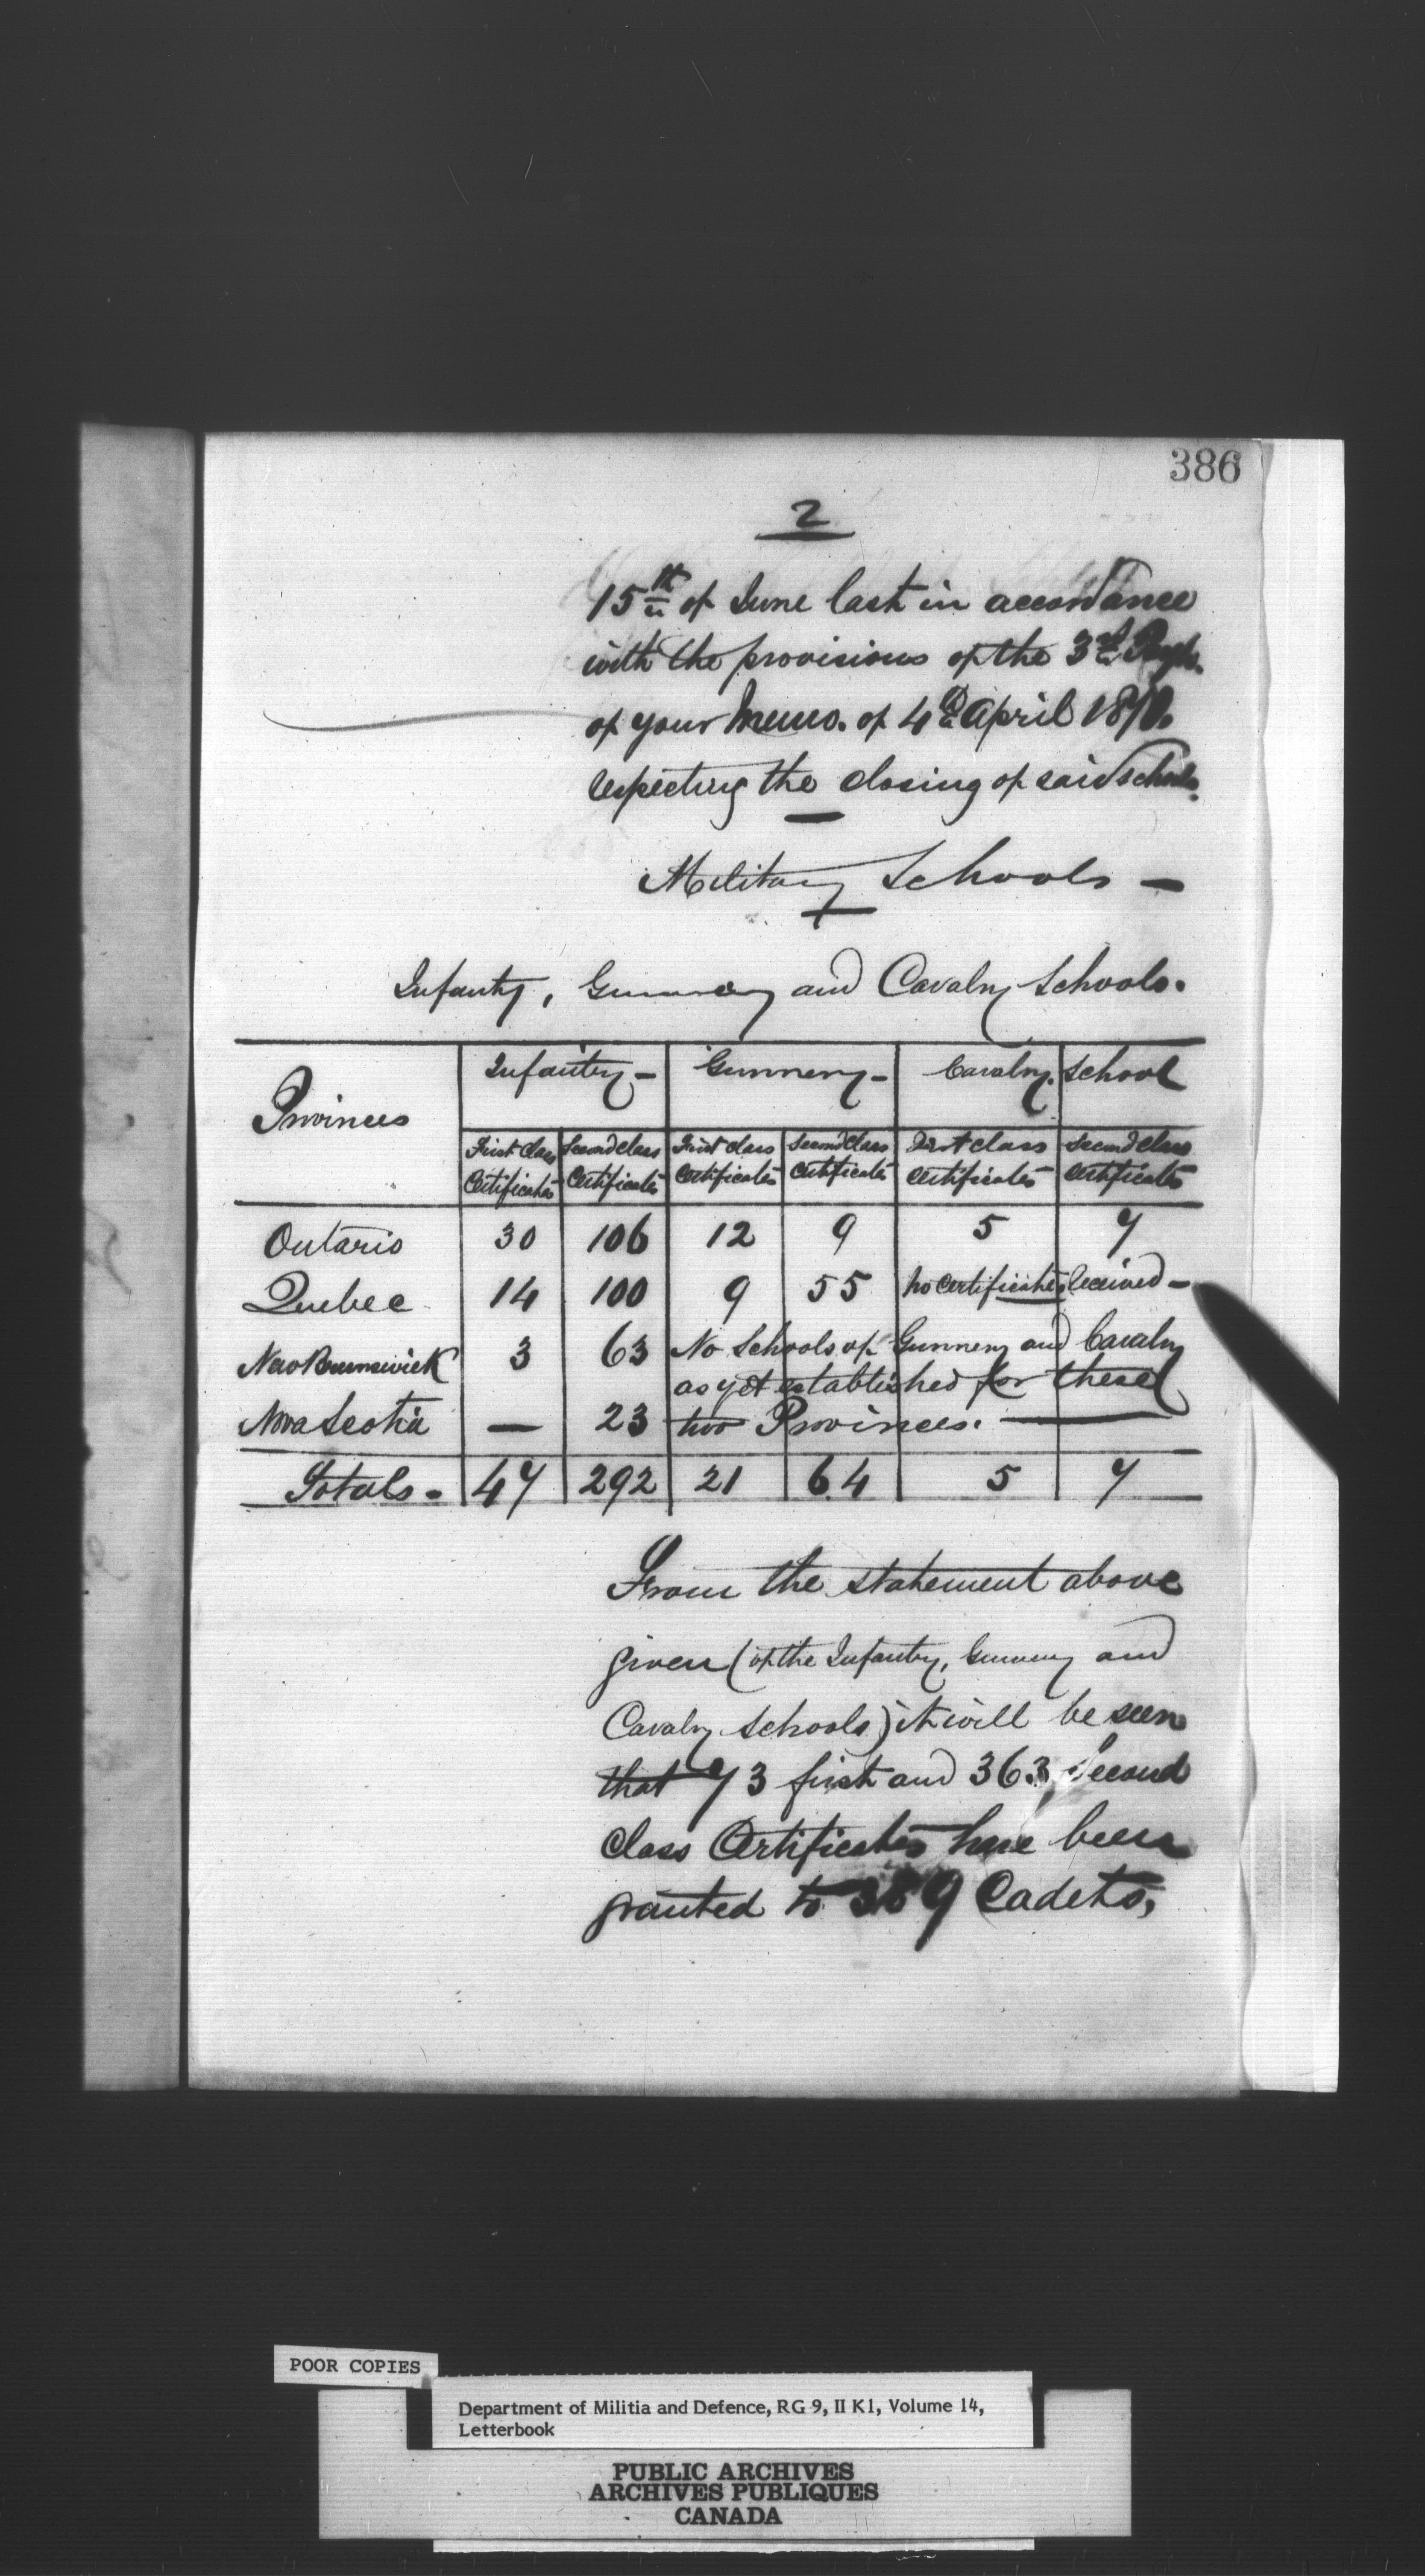 386
2
15th of June last in accordance
with the provisions of the 3rd
of your Memo. of 4th April 1870.
respecting the closing of said schools.
Military Schools –
Infantry, Gunnery and Cavalry Schools.
Provinces | Infantry – | Gunnery – | Cavalry School
First Class Certificates | Second class Certificates | First class Certificates | Second Class Certificates | First class Certificates | Second Class Certificates
Ontario | 30 | 106 | 12 | 9 | 5 | 7
Quebec | 14 | 100 | 9 | 55 | no certificates received –
New Brunswick | 3 | 63 | No Schools of Gunnery and Cavalry
as yet established for these
Nova Scotia | — | 23 | two Provinces. —
Totals – | 47 | 292 | 21 | 64 | 5 | 7
From the statement above
given (of the Infantry, Gunnery and
Cavalry Schools) it will be seen
that 73 first and 363 Second
Class Certificates have been
granted to 389 Cadets,
POOR COPIES
Department of Militia and Defence, RG 9, II K1, Volume 14,
Letterbook
PUBLIC ARCHIVES
ARCHIVES PUBLIQUES
CANADA